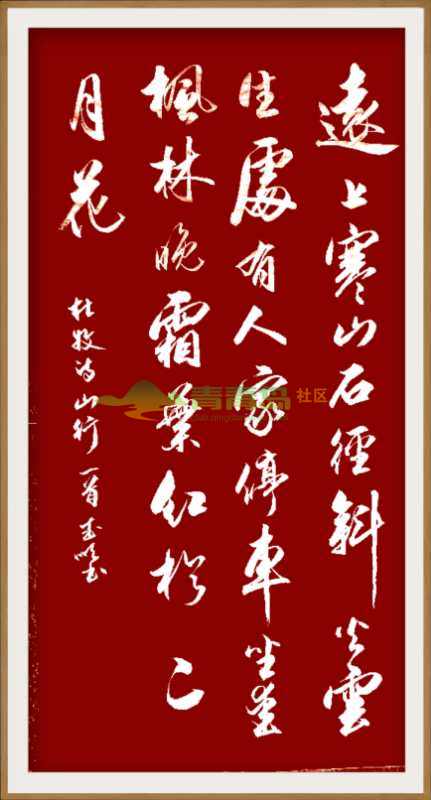 遠上寒山石徑斜白雲
生處有人家停車坐愛
楓林晚霜葉紅於二
月花
杜牧诗山行一首
青青岛社区